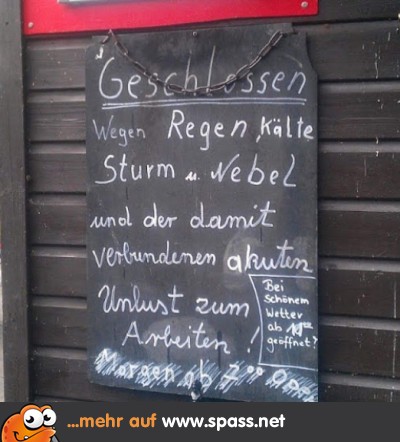 Geschlossen
Wegen Regen, Kälte
Sturm u. Nebel
und der damit
verbundenen akuten
Unlust zum
Arbeiten!
Bei
schönem
Wetter
ab
geöffnet?
Morgen ab 7⁰⁰
...mehr auf www.spass.net